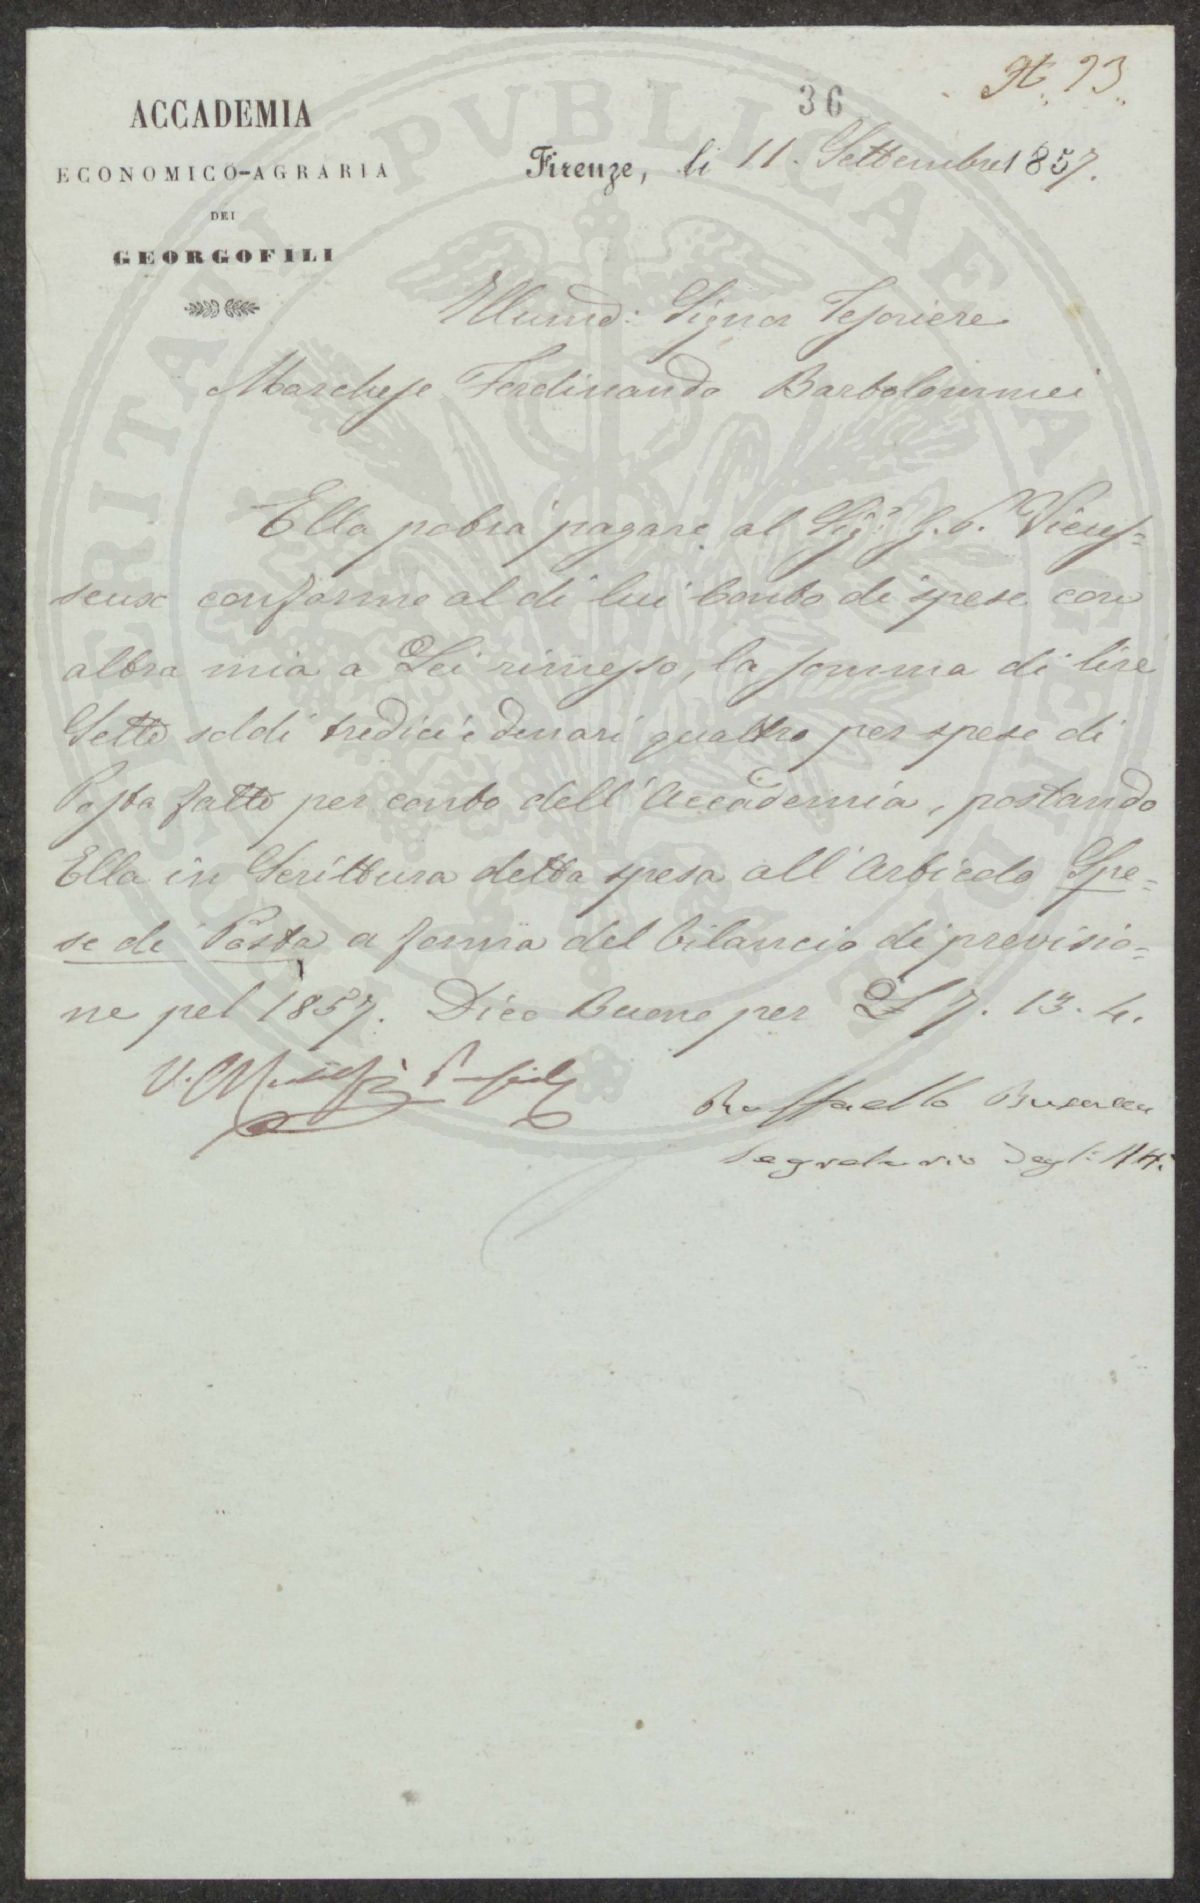 36
ACCADEMIA
ECONOMICO-AGRARIA
DEI
GEORGOFILI
Firenze, li 11. Settembre 1857.
Illumo: Signor Tesoriere
Marchese Ferdinando Bartolommei
Ella potrà pagare al Sigr. G. P. Vieus=
seux conforme al di lui Conto di spese con
altra mia a Lei rimesso, la somma di lire
Sette soldi tredici e denari quattro per spese di
Posta fatte per conto dell' Accademia, postando
Ella in Scrittura detta spesa all' Articolo Spe=
se di Posta a forma del bilancio di previsio=
ne pel 1857. Dico Buono per £ 7. 13. 4.
Raffaello Busacca
Segretario degli Atti
PUBLICAE